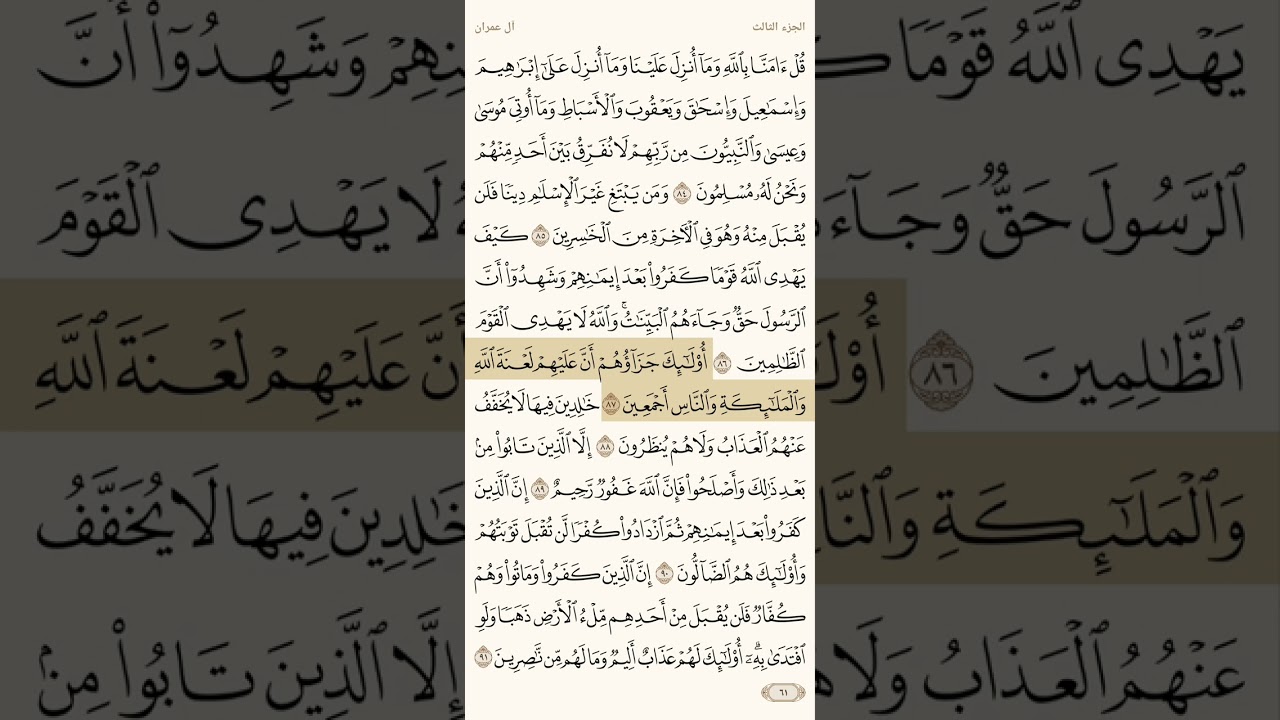 الجزء الثالث
آل عمران
قُلْ ءَامَنَّا بِٱللَّهِ وَمَآ أُنزِلَ عَلَيْنَا وَمَآ أُنزِلَ عَلَىٰٓ إِبْرَٰهِيمَ
وَإِسْمَٰعِيلَ وَإِسْحَٰقَ وَيَعْقُوبَ وَٱلْأَسْبَاطِ وَمَآ أُوتِىَ مُوسَىٰ
وَعِيسَىٰ وَٱلنَّبِيُّونَ مِن رَّبِّهِمْ لَا نُفَرِّقُ بَيْنَ أَحَدٍ مِّنْهُمْ
وَنَحْنُ لَهُۥ مُسْلِمُونَ ٨٤ وَمَن يَبْتَغِ غَيْرَ ٱلْإِسْلَٰمِ دِينًا فَلَن
يُقْبَلَ مِنْهُ وَهُوَ فِى ٱلْءَاخِرَةِ مِنَ ٱلْخَٰسِرِينَ ٨٥ كَيْفَ
يَهْدِى ٱللَّهُ قَوْمًا كَفَرُوا۟ بَعْدَ إِيمَٰنِهِمْ وَشَهِدُوٓا۟ أَنَّ
ٱلرَّسُولَ حَقٌّ وَجَآءَهُمُ ٱلْبَيِّنَٰتُ ۚ وَٱللَّهُ لَا يَهْدِى ٱلْقَوْمَ
ٱلظَّٰلِمِينَ ٨٦ أُو۟لَٰٓئِكَ جَزَآؤُهُمْ أَنَّ عَلَيْهِمْ لَعْنَةَ ٱللَّهِ
وَٱلْمَلَٰٓئِكَةِ وَٱلنَّاسِ أَجْمَعِينَ ٨٧ خَٰلِدِينَ فِيهَا لَا يُخَفَّفُ
عَنْهُمُ ٱلْعَذَابُ وَلَا هُمْ يُنظَرُونَ ٨٨ إِلَّا ٱلَّذِينَ تَابُوا۟ مِنۢ
بَعْدِ ذَٰلِكَ وَأَصْلَحُوا۟ فَإِنَّ ٱللَّهَ غَفُورٌ رَّحِيمٌ ٨٩ إِنَّ ٱلَّذِينَ
كَفَرُوا۟ بَعْدَ إِيمَٰنِهِمْ ثُمَّ ٱزْدَادُوا۟ كُفْرًا لَّن تُقْبَلَ تَوْبَتُهُمْ
وَأُو۟لَٰٓئِكَ هُمُ ٱلضَّآلُّونَ ٩٠ إِنَّ ٱلَّذِينَ كَفَرُوا۟ وَمَاتُوا۟ وَهُمْ
كُفَّارٌ فَلَن يُقْبَلَ مِنْ أَحَدِهِم مِّلْءُ ٱلْأَرْضِ ذَهَبًا وَلَوِ
ٱفْتَدَىٰ بِهِۦٓ ۗ أُو۟لَٰٓئِكَ لَهُمْ عَذَابٌ أَلِيمٌ وَمَا لَهُم مِّن نَّٰصِرِينَ ٩١
٦١